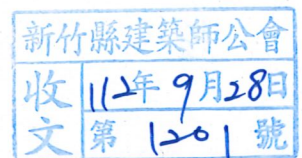 新竹縣建築師公會
收文
112年9月28日
第1201號